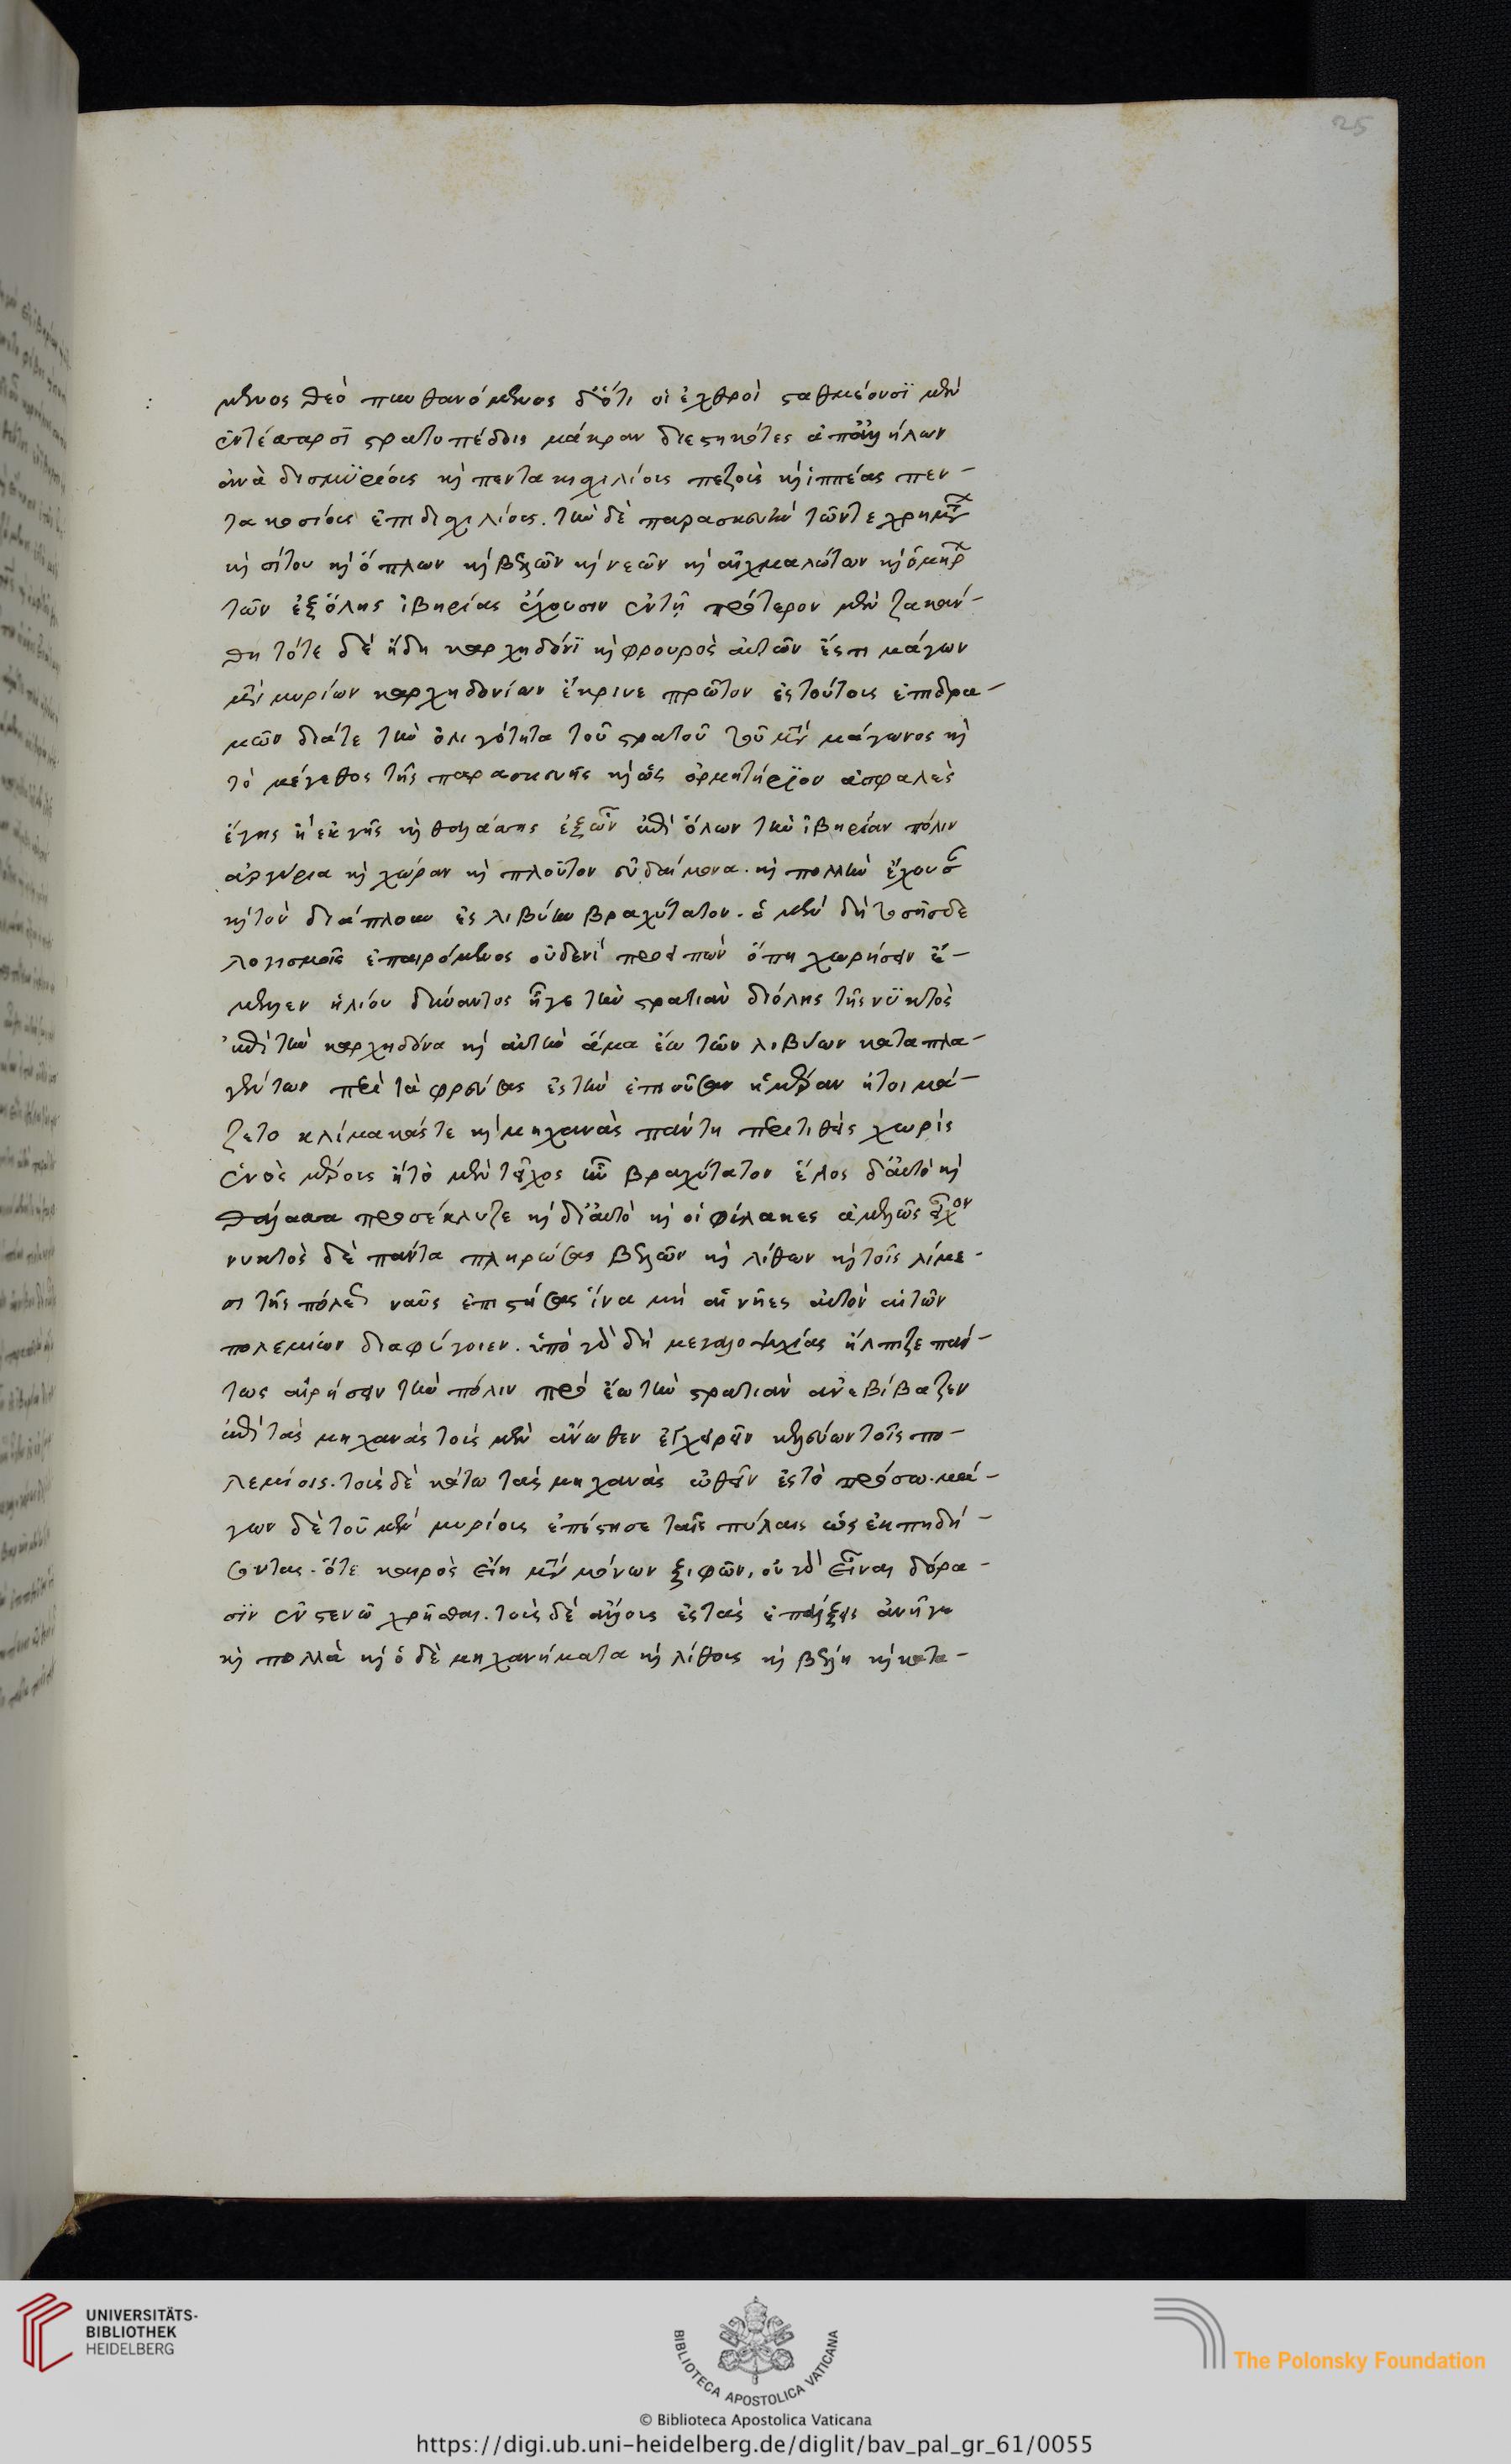 25
μενος θεῷ πυνθανόμενος δ' ὅτι οἱ ἐχθροὶ σταθμεύουσϊ μὲν
ἐν τέσσαρσϊ στρατοπέδοις μάκραν διεστηκότες ἀπ' ἀλλήλων
ἀνὰ δισμυρίους καὶ πεντακισχιλίους πεζοὺς καὶ ἱππέας πεν-
τακοσίους ἐπὶ δισχιλίοις. τὴν δὲ παρασκευὴν τῶν τε χρημάτων
καὶ σίτου καὶ ὅπλων καὶ βελῶν καὶ νεῶν καὶ αἰχμαλώτων καὶ ὁμήρων
τῶν ἐξ ὅλης ἰβηρίας ἔχουσιν ἐν τῇ πρότερον μὲν ζακαν-
θῃ τότε δὲ ἤδη καρχηδόνϊ καὶ φρουρὸς αὐτῶν ἔστι μάγων
μετὰ μυρίων καρχηδονίων ἔκρινε πρῶτον ἐς τούτους ἐπιδρα-
μεῖν διά τε τὴν ὀλιγότητα τοῦ στρατοῦ τοῦ μετὰ μάγωνος καὶ
τὸ μέγεθος τῆς παρασκευῆς καὶ ὡς ὁρμητήριον ἀσφαλὲς
ἐγῆς ἢ ἐκ γῆς καὶ θαλάσσης ἐξων ἐπὶ ὅλων τὴν ἰβηρίαν πόλιν
ἀργύρια καὶ χώραν καὶ πλοῦτον εὐδαίμονα. καὶ πολλὴν ἔχουσαν
καὶ τὸν διάπλουν ἐς λιβύην βραχύτατον. ὁ μὲν δὴ τοσοῖσδε
λογισμοῖς ἐπαιρόμενος οὐδενὶ προειπὼν ὅπη χωρήσειν ἔ-
μελλεν ἡλίου δύναντος ἦγε τὴν στρατιὰν δι' ὅλης τῆς νυκτὸς
ἐπὶ τὴν καρχηδόνα καὶ αὐτὴν ἅμα ἕω τῶν λιβύων καταπλα-
γέντων περιταφρεύσας ἐς τὴν ἐπιοῦσαν ἡμέραν ἡτοιμά-
ζετο κλίμακάς τε καὶ μηχανὰς πάντη περιτιθεὶς χωρὶς
ἑνὸς μέρους ᾗ τὸ μὲν τεῖχος ἦν βραχύτατον ἕλος δ' αὐτὸ καὶ
θάλασσα προσέκλυζε καὶ δι' αὐτὸ καὶ οἱ φύλακες ἀμελῶς εἶχον
νυκτὸς δὲ πάντα πληρώσας βελῶν καὶ λίθων καὶ τοῖς λίμε-
σι τῆς πόλεως ναῦς ἐπιστήσας ἵνα μὴ αἱ νῆες αὐτὸν αἱ τῶν
πολεμίων διαφύγοιεν. ὑπὸ γὰρ δὴ μεγαλοψυχίας ἤλπιζε πάν-
τως αἱρήσειν τὴν πόλιν πρὸ ἕω τὴν στρατιὰν ἀνεβίβαζεν
ἐπὶ τὰς μηχανὰς τοὺς μὲν ἄνωθεν ἐγχειρεῖν κελεύων τοῖς πο-
λεμίοις. τοὺς δὲ κάτω τὰς μηχανὰς ὠθεῖν ἐς τὸ πρόσω. μά-
γων δὲ τοὺς μὲν μυρίους ἐπέστησε ταῖς πύλαις ὡς ἐκπηδή-
σοντας. ὅτε καιρὸς εἴη μετὰ μόνων ξιφῶν, οὐ γὰρ εἶναι δόρα-
σϊν ἐν στενῷ χρῆσθαι. τοὺς δὲ ἄλλους ἐς τὰς ἐπάλξεις ἀνῆγε
καὶ πολλὰ καὶ ὁ δὲ μηχανήματα καὶ λίθους καὶ βέλη καὶ κατα-
UNIVERSITÄTS-
BIBLIOTHEK
HEIDELBERG
BIBLIOTECA APOSTOLICA VATICANA
The Polonsky Foundation
© Biblioteca Apostolica Vaticana
https://digi.ub.uni-heidelberg.de/diglit/bav_pal_gr_61/0055